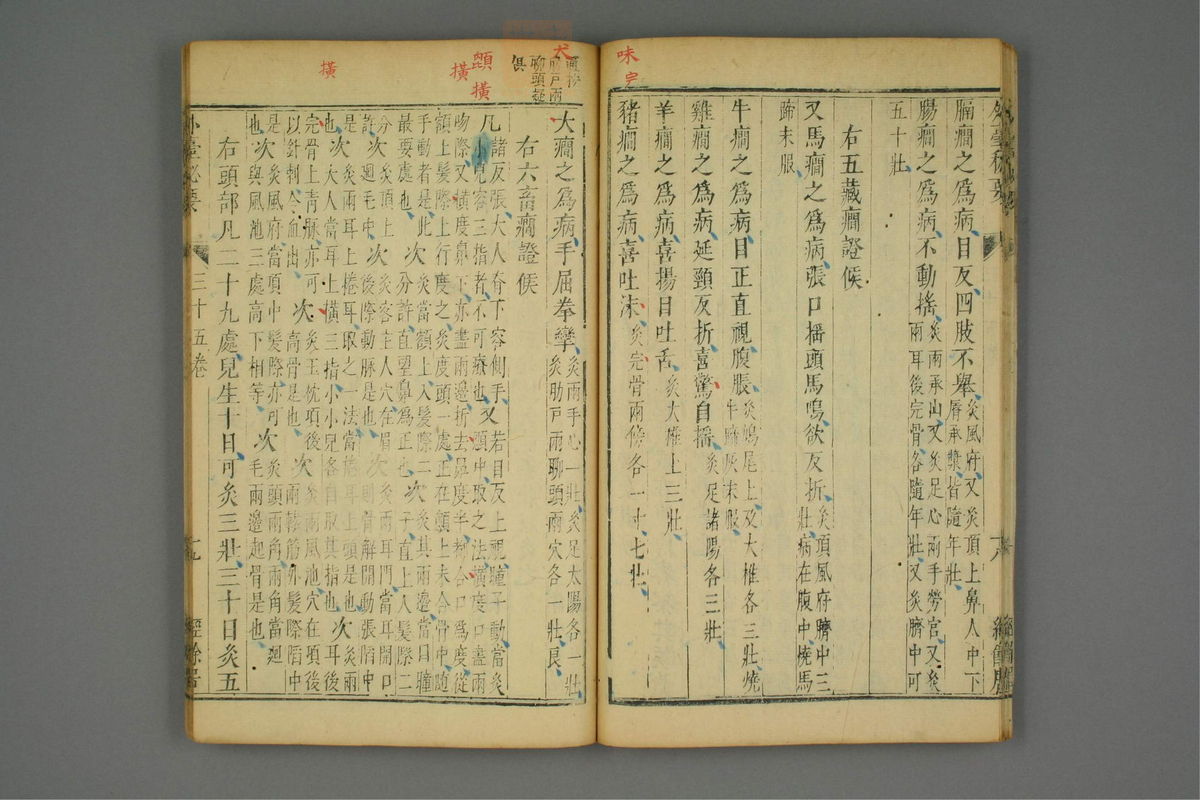 膈癇之為病目反四肢不舉灸風府又灸頂上鼻人中下
脣承漿皆隨年壯
腸癇之為病不動搖灸兩承山又灸足心兩手勞宮又灸
兩耳後完骨各隨年壯又灸臍中可
五十壯
右五藏癇證候
又馬癇之為病張口搖頭馬鳴欲反折灸項風府臍中三
壯病在腹中燒馬
蹄末服
牛癇之為病目正直視腹脹灸鳩尾上及大椎各三壯燒
牛蹄灰末服
雞癇之為病延頸反折喜驚自搖灸足諸陽各三壯
羊癇之為病喜揚目吐舌灸大椎上三壯
豬癇之為病喜吐沫灸完骨兩傍各一寸七壯
味
犬
顖
橫
橫
橫
聊頭疑
俱
犬癇之為病手屈拳攣灸兩手心一壯灸足太陽各一壯
灸肋戶一壯
右六畜癇證候
凡諸反張大人脊下容側手又若目反上視瞳子動當灸
小兒容三指者不可療也顖中取之法橫度口盡兩
吻際又橫度鼻下亦盡兩邊折去鼻度半都合口為度從
額上髮際上行度之灸度頭一處正在顖上未合骨中隨
手動者是此次灸當額上入髮際二分許直望鼻為正也
最要處也次灸其兩邊當目瞳子直上入髮際二
分許次灸頂上迴毛中次灸客主人穴在眉後際動脈是也
次灸兩耳門當耳開口則骨解開動張陷中
是次灸兩耳上捲耳取之一法當捲耳上頭是也
也大人當耳上橫三指小小兒各自取其指也次灸兩耳後
完骨上青脈亦可以針刺令血出次灸玉枕項後高骨是也
次灸兩風池穴在項後兩轅筋外髮際陷中
是也次灸風府當項中髮際亦可與風池三處高下相等
次灸頭兩角兩角當迴毛兩邊起骨是也
右頭部凡一十九處兒生十日可灸三壯三十日灸五
三十五卷
經餘居